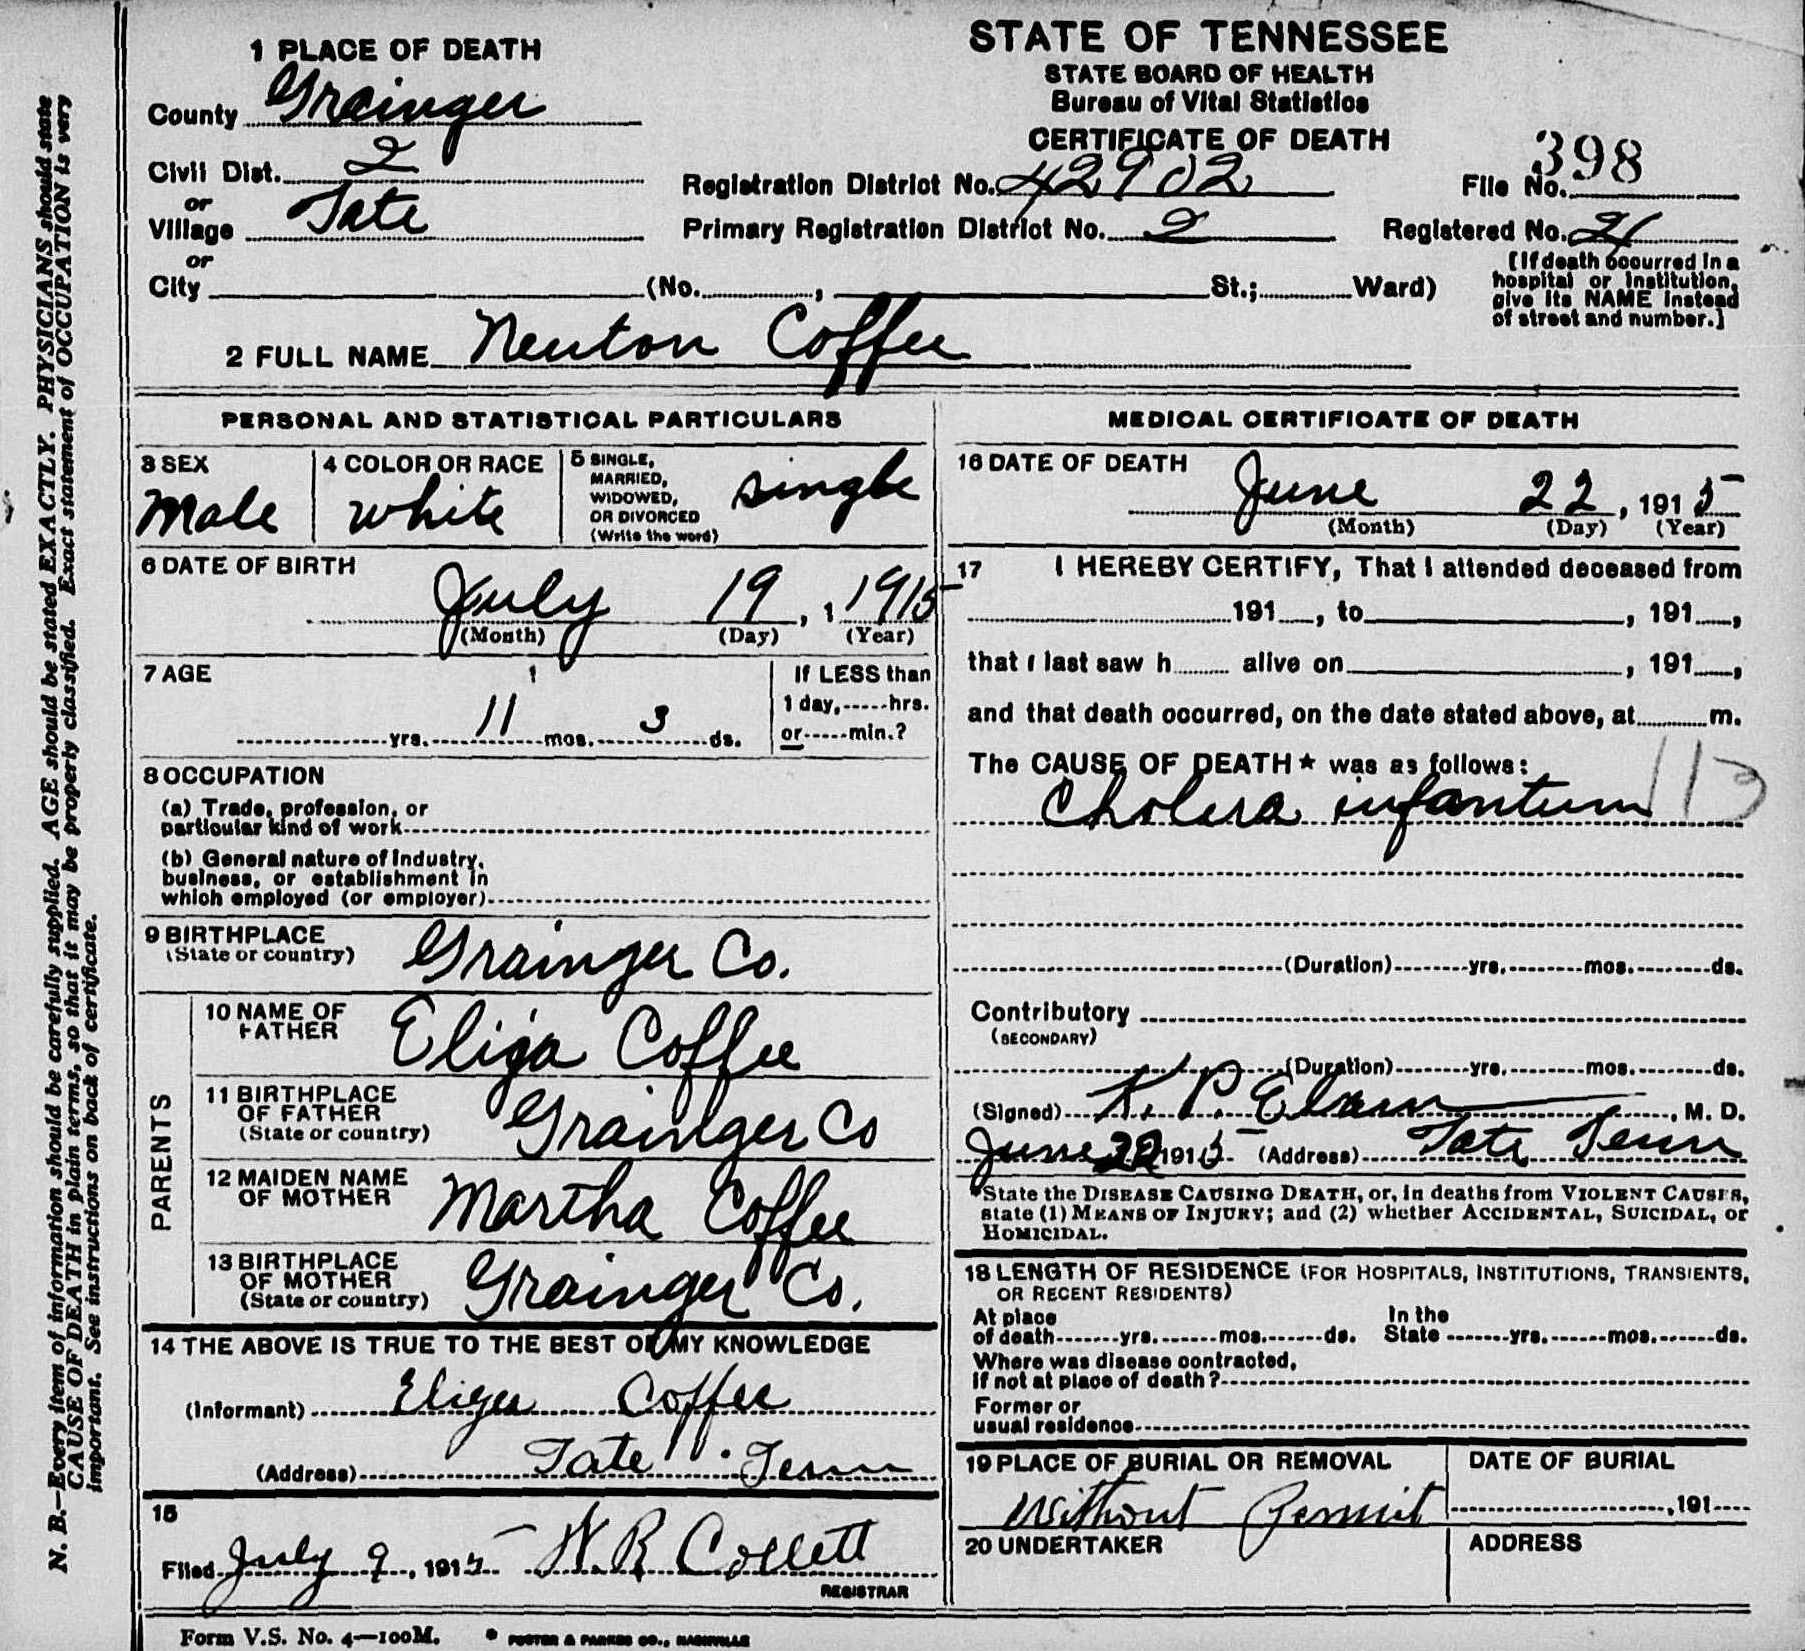 STATE OF TENNESSEE
STATE BOARD OF HEALTH
Bureau of Vital Statistics
CERTIFICATE OF DEATH
1 PLACE OF DEATH
County Grainger
Civil Dist. 2
or
Village Tate
or
City (No. , St.; Ward)
Registration District No. 42902
Primary Registration District No. 2
File No. 398
Registered No. 21
[If death occurred in a
hospital or institution,
give its NAME instead
of street and number.]
2 FULL NAME Newton Coffee
PERSONAL AND STATISTICAL PARTICULARS
3 SEX
Male
4 COLOR OR RACE
white
5 SINGLE,
MARRIED,
WIDOWED,
OR DIVORCED
(Write the word)
single
6 DATE OF BIRTH
July 19, 1 1915
(Month) (Day) (Year)
7 AGE
yrs. 11 mos. 3 ds.
If LESS than
1 day, hrs.
or min.?
8 OCCUPATION
(a) Trade, profession, or
particular kind of work
(b) General nature of Industry,
business, or establishment in
which employed (or employer)
9 BIRTHPLACE
(State or country)
Grainger Co.
PARENTS
10 NAME OF
FATHER
Eliga Coffee
11 BIRTHPLACE
OF FATHER
(State or country)
Grainger Co
12 MAIDEN NAME
OF MOTHER
Martha Coffee
13 BIRTHPLACE
OF MOTHER
(State or country)
Grainger Co.
14 THE ABOVE IS TRUE TO THE BEST OF MY KNOWLEDGE
(Informant) Eliga Coffee
(Address) Tate Tenn
15
Filed July 9, 1915 W. R. Collett
REGISTRAR
MEDICAL CERTIFICATE OF DEATH
16 DATE OF DEATH
June 22, 1915
(Month) (Day) (Year)
17 I HEREBY CERTIFY, That I attended deceased from
191 , to , 191 ,
that I last saw h alive on , 191 ,
and that death occurred, on the date stated above, at m.
The CAUSE OF DEATH* was as follows:
Cholera infantum 113
(Duration) yrs. mos. ds.
Contributory
(SECONDARY)
(Duration) yrs. mos. ds.
(Signed) K. P. Elam, M. D.
June 22 1915 (Address) Tate Tenn
*State the DISEASE CAUSING DEATH, or, in deaths from VIOLENT CAUSES,
state (1) MEANS OF INJURY; and (2) whether ACCIDENTAL, SUICIDAL, or
HOMICIDAL.
18 LENGTH OF RESIDENCE (FOR HOSPITALS, INSTITUTIONS, TRANSIENTS,
OR RECENT RESIDENTS)
At place In the
of death yrs. mos. ds. State yrs. mos. ds.
Where was disease contracted,
if not at place of death?
Former or
usual residence
19 PLACE OF BURIAL OR REMOVAL
Without Permit
DATE OF BURIAL
, 191
20 UNDERTAKER
ADDRESS
N. B.—Every item of information should be carefully supplied. AGE should be stated EXACTLY. PHYSICIANS should state
CAUSE OF DEATH in plain terms, so that it may be properly classified. Exact statement of OCCUPATION is very
important. See instructions on back of certificate.
Form V.S. No. 4—100M. FOSTER & PARKES CO., NASHVILLE